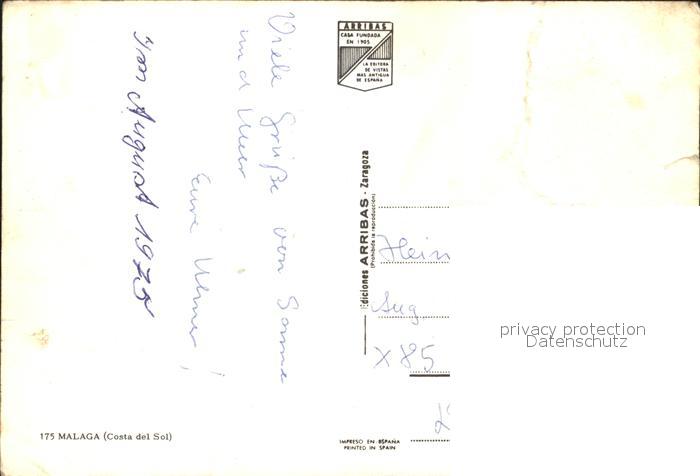 Viele Grüße von Sonne
und Meer
Eure Ulmer!
Im August 1975
175 MALAGA (Costa del Sol)
ARRIBAS
CASA FUNDADA
EN 1905
LA EDITORA
DE VISTAS
MAS ANTIGUA
DE ESPAÑA
Ediciones ARRIBAS - Zaragoza
(Prohibida la reproducción)
Hein
Aug
X 85
IMPRESO EN ESPAÑA
PRINTED IN SPAIN
privacy protection
Datenschutz